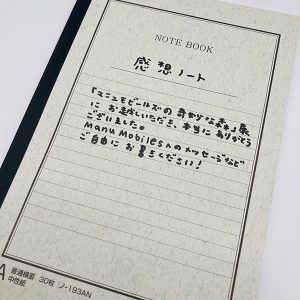 NOTE BOOK
感想ノート
「マニュモビールズの奇妙な森」展
にお越しいただき、本当にありがとう
ございました。
Manu Mobilesへのメッセージなど
ご自由にお書きください!
A
中性紙
普通横罫 30枚 ノ-193AN